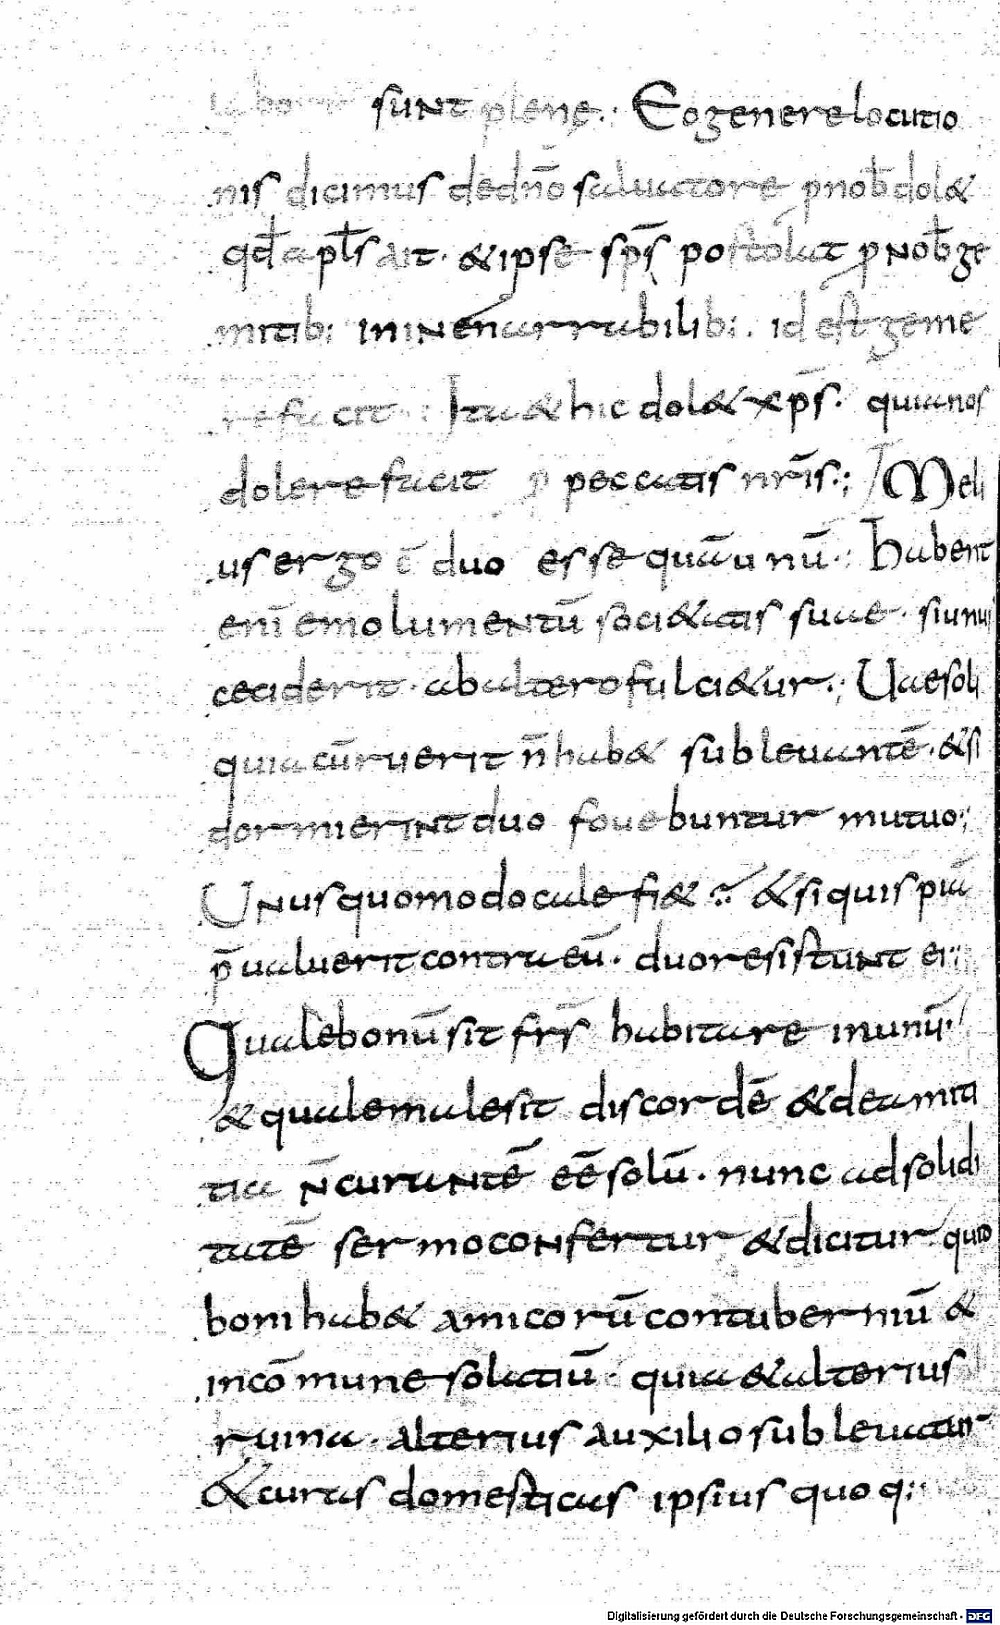 sunt plenę. Eo genere locutio
nis dicimus de dn̄o saluatore p nob̄ dol&
qd̄ apl̄s ait. & ipse sp̄s postolat p nob̄ ge
mitib; in inenarrabilib;. id est geme
re facit. Ita & hic dol& xp̄s. quia nos
dolere facit p peccatis nr̄is.; Meli
us ergo ē duo esse quā unū.; Habent
enī emolumentū soci&atis suae. si unus
ceciderit. ab altero fulci&ur.; Uae soli
quia cū ruerit n̄ hab& subleuantē. & si
dormierint duo fouebuntur mutuo;
Unus quomodo calefi&? & si quispiā
p̄ualuerit contra eū. duo resistunt ei;
Quale bonū sit frs̄ habitare in unū.
& quale male sit discordē & de amita
tia n̄ curantē eē solū. nunc ad solidi
tatē sermo confertur & dicitur quid
boni hab& amicorū contuberniū &
in cōmune solatiū. quia & alterius
ruina. alterius auxilio subleuatur
& curas domesticas ipsius quoq;
Digitalisierung gefördert durch die Deutsche Forschungsgemeinschaft - DFG